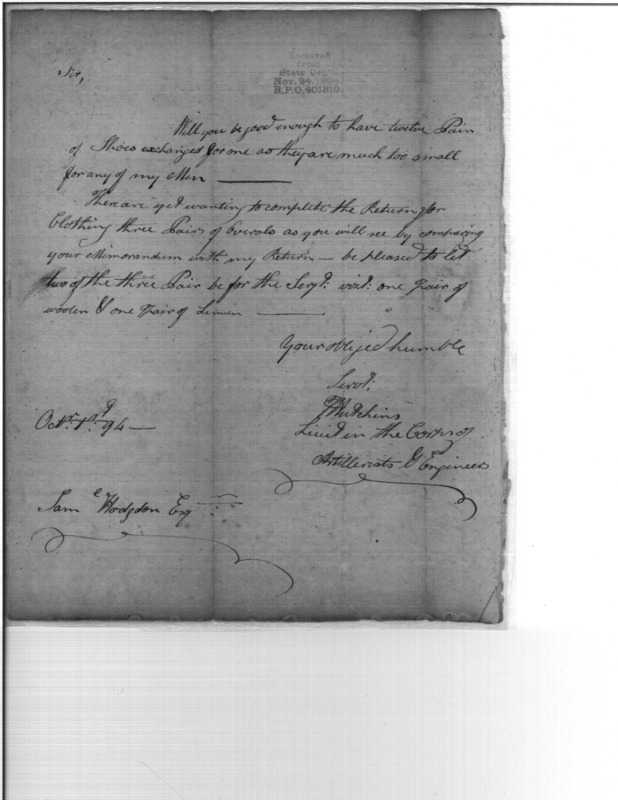 Received
from
State Dep't.
Nov. 24, 1894.
R.P.O. 401810.
Sir,
Will you be good enough to have twelve Pair
of Shoes exchanged for me as they are much too small
for any of my Men
There are yet wanting to complete the Return for
Clothing three Pairs of Overals as you will see by comparing
your Memorandum with my Return — be pleased to let
two of the three Pair be for the Sergt: vizt: one Pair of
woolen & one Pair of Linnen
Your obliged humble
Servt:
Hutchins
Lieut in the Corps of
Artillerists & Engineers
Octr. 1st 94 —
Sam e Hodgdon Esq